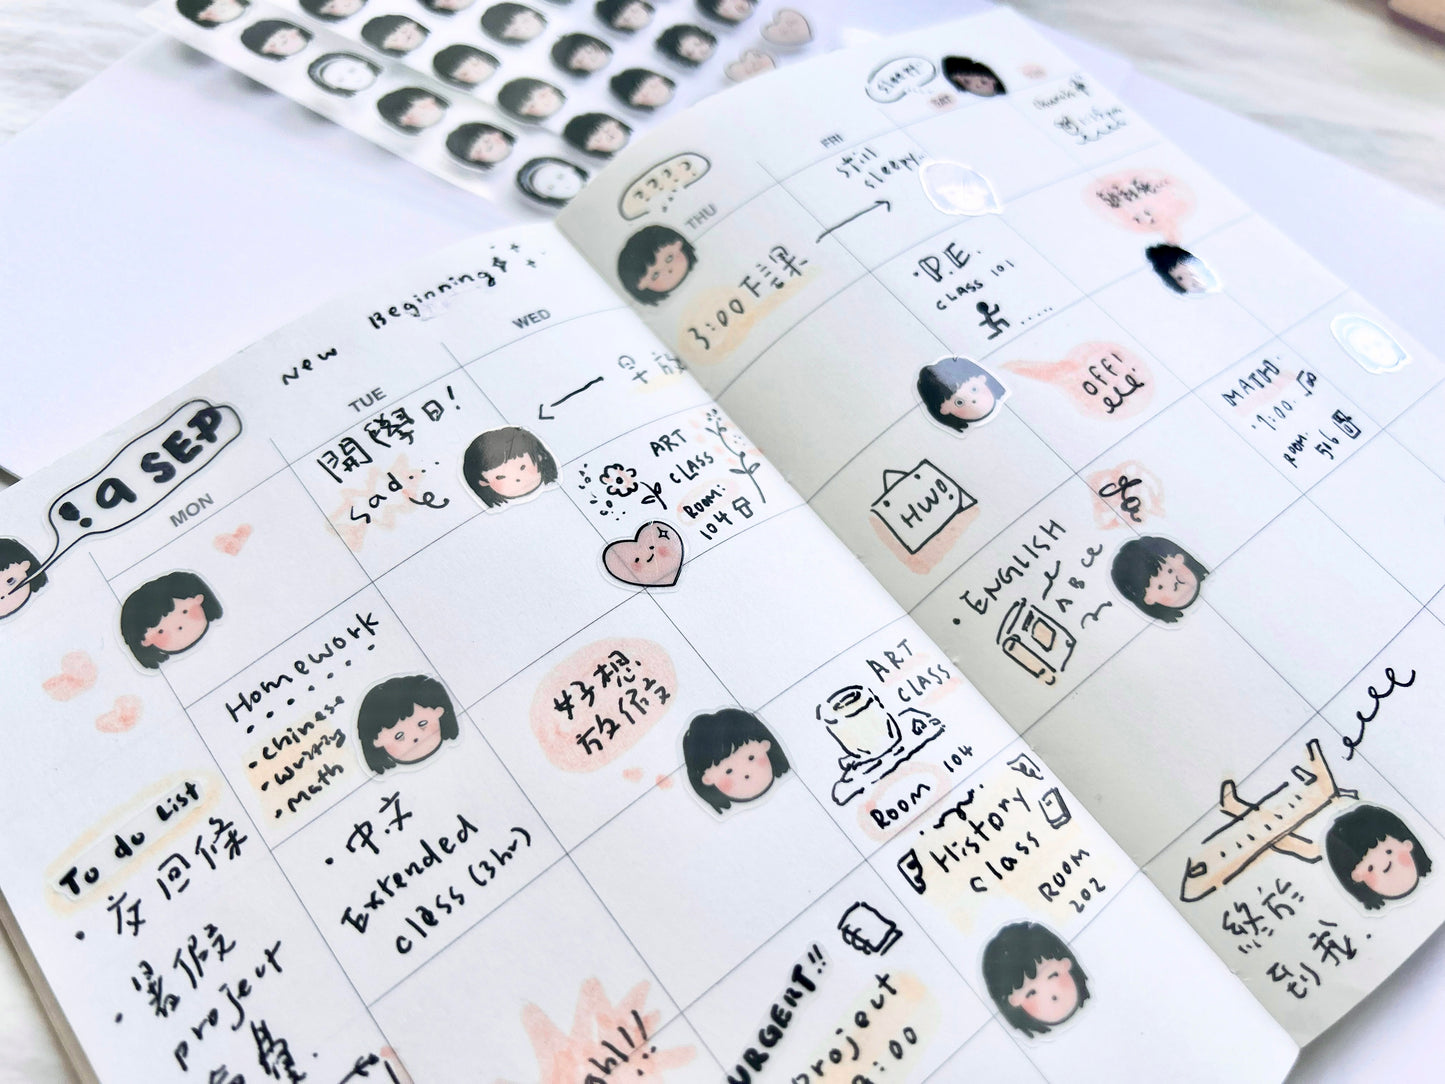 New Beginning
! 9 SEP
MON
TUE
WED
開學日!
sad...
早放
ART
CLASS
ROOM:
104
Homework
• Chinese
• Writing
• Math
好想
放假
ART
CLASS
ROOM 104
To do List
• 交回條
• 暑假
project
• 中文
Extended
class (3hr)
History
class
ROOM
202
URGENT!!
project
:00
ghl!!
????
THU
FRI
SAT
sleepy
3:00下課
still
sleepy..
• P.E.
CLASS 101
OFF!
HW!
• ENGLISH
A B C
MATH
• 9:00
ROOM.
516
終於
到我.